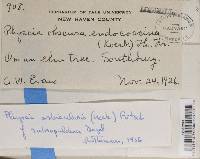 908.
HERBARIUM OF YALE UNIVERSITY
NEW HAVEN COUNTY
Physcia obscura endococcina
(Koerb.) Th. Fr.
On an elm tree. Southbury.
A. W. Evans Nov. 24, 1926.
Physcia orbicularis (Neck.) Poetsch
f. rubropulchra Degel